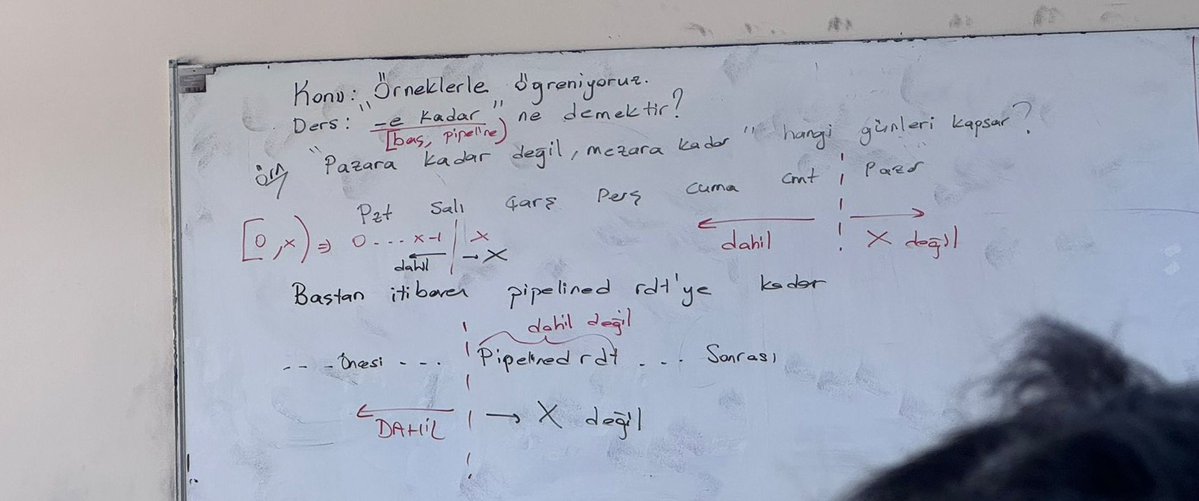 Konu: Örneklerle öğreniyoruz.
Ders: "-e kadar" ne demektir?
[baş, pipeline)
örn "Pazara kadar değil, mezara kadar" hangi günleri kapsar?
Pzt Salı Çarş Perş Cuma Cmt Pazar
dahil X değil
[0, x) ⇒ 0 ... x-1 x
dahil → X
Baştan itibaren pipelined rdt'ye kadar
dahil değil
--- Öncesi --- Pipelined rdt --- Sonrası
DAHİL → X değil